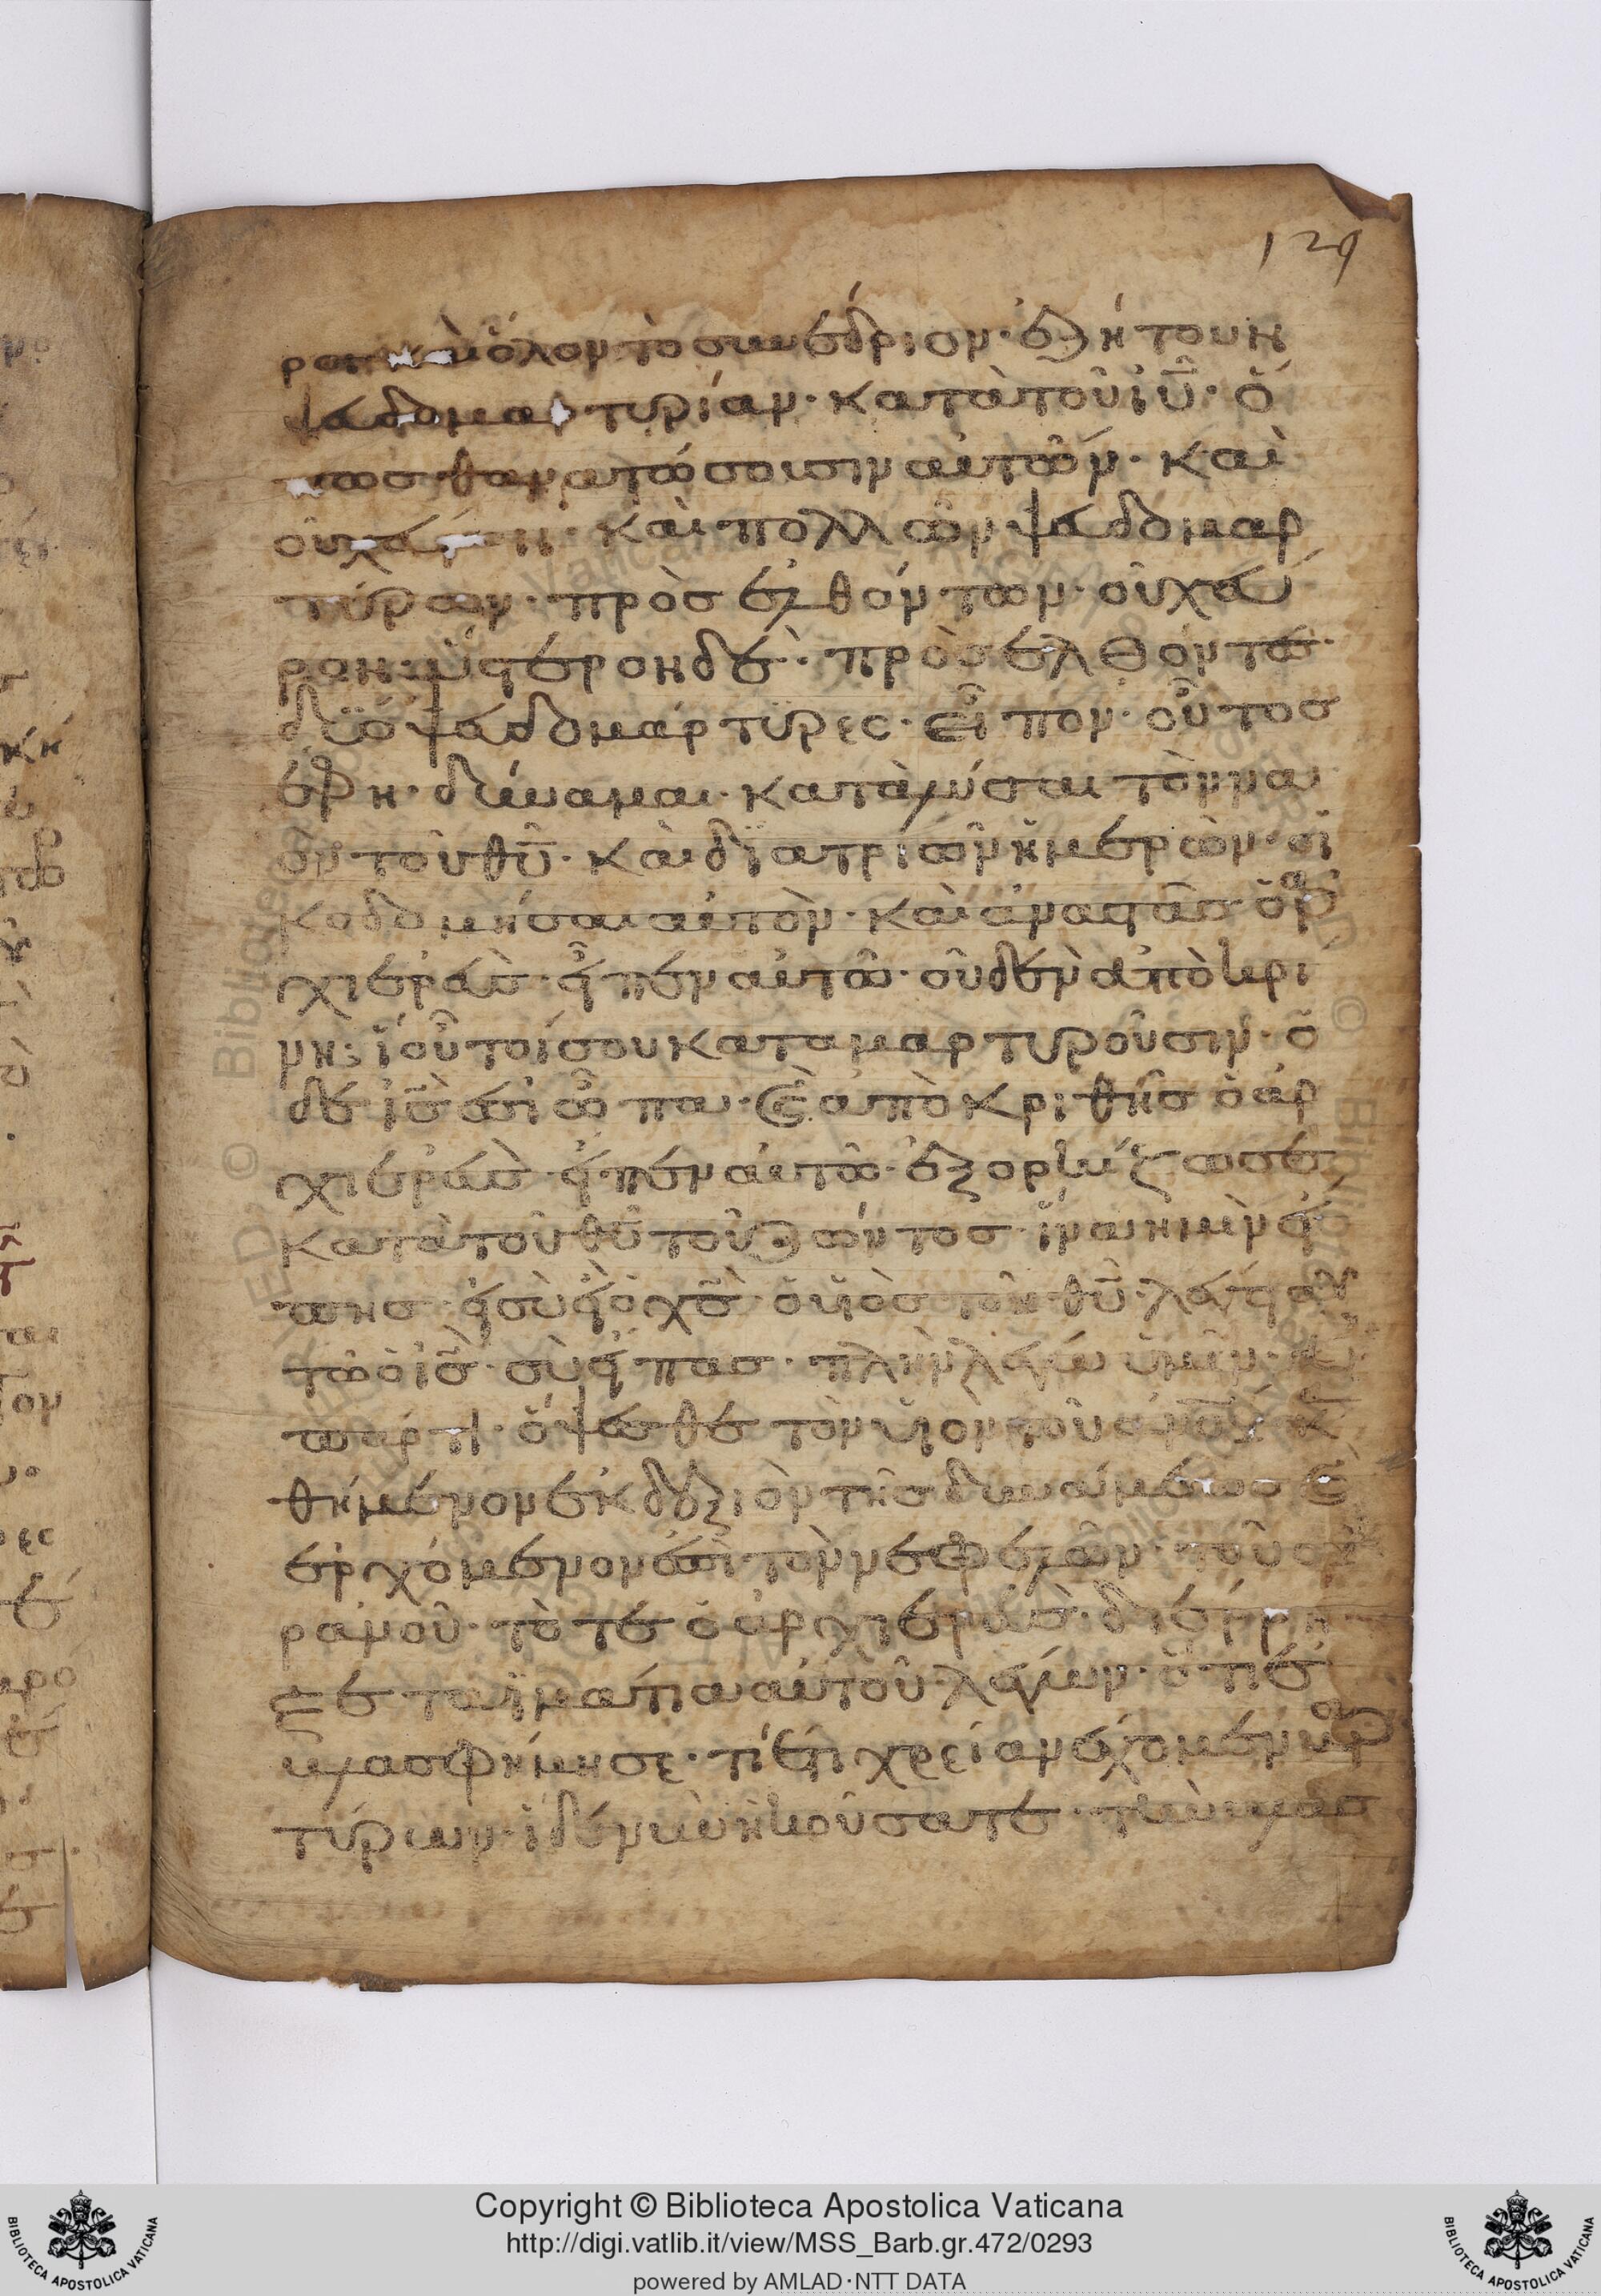 129
ροι καὶ ὅλον τὸ συνέδριον· ἐζήτουν
ψευδομαρτυρίαν· κατὰ τοῦ ἰῦ· ὅ
πως θανατώσουσιν αὐτῶν· καὶ
οὐχ εὗρον· καὶ πολλῶν ψευδομαρ
τύρων· πρὸσελθόντων· οὐχ εὗ
ρον· ὕστερον δὲ· πρὸσελθόντες
δύο ψευδομάρτυρες· εἶπον· οὗτος
ἔφη· δύναμαι· καταλύσαι τὸν να
ὸν τοῦ θῦ· καὶ διατριῶν ἡμερῶν· οἰ
κοδομήσαι αὐτὸν· καὶ ἀναστὰσ ὁ ἀρ
χιερεὺσ· εἶπεν αὐτῶ· οὐδὲν ἀπὸκρι
νη· τί οὗτοί σου καταμαρτυροῦσιν· ὁ
δὲ ἰσ ἐσιῶπα· καὶ ἀπὸκριθῆσ ὁ ἀρ
χιερεὺσ· εἶπεν αὐτῶ· ἐξορκίζω σε
κατὰ τοῦ θῦ τοῦ ζῶντοσ· ἵνα ἡμὶν εἴ
πησ· εἰ σὺ εἶ ὁ χσ· ὁ υἱὸσ τοῦ θῦ· λέγει αὐ
τῶ ὁ ισ· σὺ εἶπασ· πλὴν λέγω ὑμῖν· ἀ
π' ἄρτι· ὄψεσθε τὸν υἱὸν τοῦ ἀνοῦ κα
θήμενον ἐκ δεξιὸν τῆσ δυνάμεωσ καὶ
ἐρχόμενον ἐπὶ τὸν νεφελῶν· τοῦ οὐ
ρανοῦ· τὸτε ὁ ἀρχιερεὺσ· διέρρη
ξε τὰ ἱμάτια αὐτοῦ· λέγων· ὅτι ἐ
βλασφήμησε· τί ἔτι χρείαν ἔχομεν μαρ
τύρων· ἰδὲ νῦν ἠκούσατε· τὴν βλασ
Copyright © Biblioteca Apostolica Vaticana
http://digi.vatlib.it/view/MSS_Barb.gr.472/0293
powered by AMLAD·NTT DATA
BIBLIOTECA APOSTOLICA VATICANA
BIBLIOTECA APOSTOLICA VATICANA